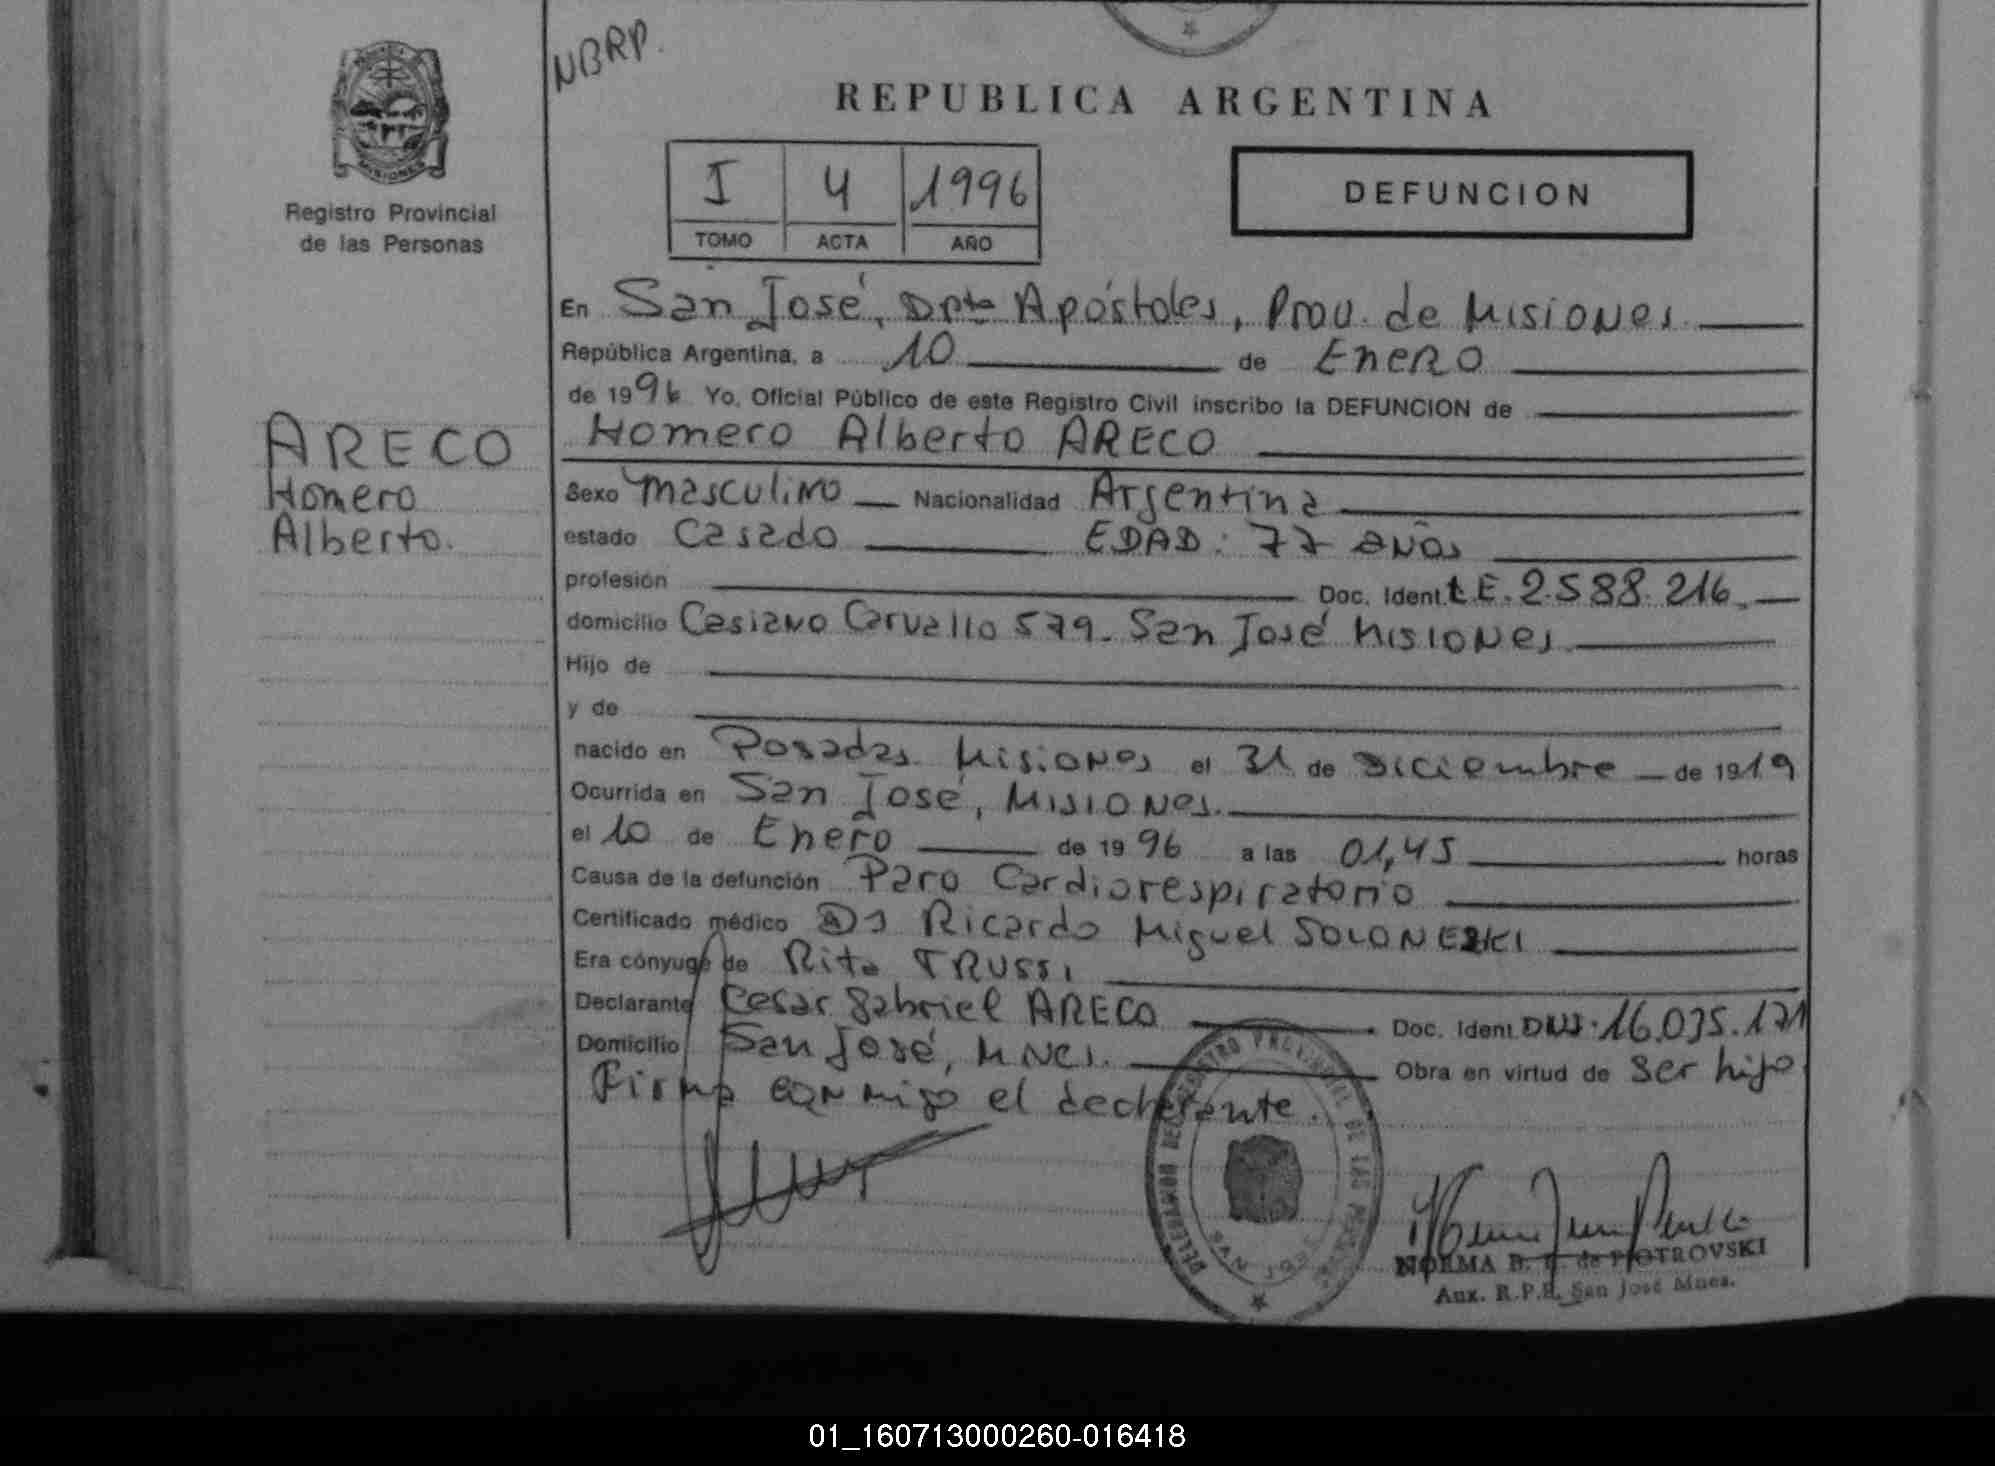 NBRP.
REPUBLICA ARGENTINA
MISIONES
Registro Provincial
de las Personas
I 4 1996
TOMO ACTA AÑO
DEFUNCION
En San José, Dpto Apóstoles, Prov. de Misiones
República Argentina, a 10 de Enero
de 1996 Yo, Oficial Público de este Registro Civil inscribo la DEFUNCION de
Homero Alberto ARECO
ARECO
Homero
Alberto.
Sexo Masculino Nacionalidad Argentina
estado Casado EDAD: 77 años
profesión Doc. Ident. L.E. 2.588.216.
domicilio Casiano Carvallo 579. San José Misiones
Hijo de
y de
nacido en Posadas Misiones el 31 de Diciembre de 1919
Ocurrida en San José, Misiones.
el 10 de Enero de 1996 a las 01,45 horas
Causa de la defunción Paro Cardiorespiratorio
Certificado médico Ricardo Miguel SOLONESKI
Era cónyuge de Rita TRUSSI
Declarante Cesar Gabriel ARECO Doc. Ident. DNI. 16.035.171
Domicilio San José, Mnes. Obra en virtud de ser hijo
Firma conmigo el declarante.
DELEGACION DEL REGISTRO PROVINCIAL DE LAS PERSONAS
SAN JOSE
NORMA B. de PIOTROVSKI
Aux. R.P.P. San José Mnes.
01_160713000260-016418